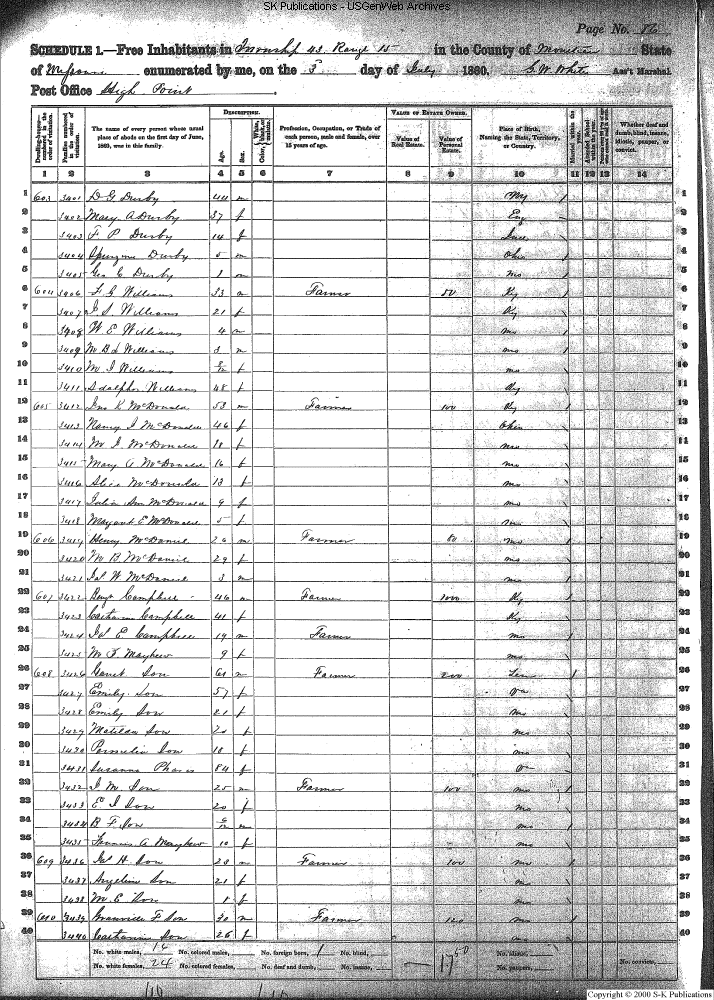 SK Publications - USGenWeb Archives
Page No. 86
SCHEDULE 1.—Free Inhabitants in Township 43 Range 15 in the County of Moniteau State
of Missouri enumerated by me, on the 3 day of July 1860. G. W. White Ass't Marshal.
Post Office High Point
Dwelling-houses—numbered in the order of visitation.
Families numbered in the order of visitation.
The name of every person whose usual place of abode on the first day of June, 1860, was in this family.
DESCRIPTION.
Age.
Sex.
Color, White, black, or mulatto.
Profession, Occupation, or Trade of each person, male and female, over 15 years of age.
VALUE OF ESTATE OWNED.
Value of Real Estate.
Value of Personal Estate.
Place of Birth, Naming the State, Territory, or Country.
Married within the year.
Attended School within the year.
Whether deaf and dumb, blind, insane, idiotic, pauper, or convict.
1 2 3 4 5 6 7 8 9 10 11 12 13 14
1 603 3401 D G Durby 44 m Ny 1
2 3402 Mary A Durby 37 f Eng 2
3 3403 F P Durby 14 f 3
4 3404 Durby 5 m Ohio 4
5 3405 Geo C Durby 1 m mo 5
6 604 3406 F G Williams 33 m Farmer 50 Ky 6
7 3407 J S Williams 21 f Ky 7
8 3408 W E Williams 4 m mo 8
9 3409 Wm B L Williams 3 m mo 9
10 3410 M J Williams f mo 10
11 3411 Adalphus Williams 48 f Ky 11
12 605 3412 Jno K McDonald 53 m Farmer 100 Ky 12
13 3413 Nancy J McDonald 46 f Ohio 13
14 3414 M J McDonald 18 f mo 14
15 3415 Mary A McDonald 16 f mo 15
16 3416 Alice McDonald 13 f mo 16
17 3417 Julia Ann McDonald 9 f mo 17
18 3418 Margaret E McDonald 5 f mo 18
19 606 3419 Henry McDaniel 26 m Farmer 80 mo 19
20 3420 M B McDaniel 29 f mo 20
21 3421 Jas W McDaniel 3 m mo 21
22 607 3422 Benj Campbell 46 m Farmer 1000 Ky 22
23 3423 Catharine Campbell 41 f Ky 23
24 3424 Jas E Campbell 19 m Farmer mo 24
25 3425 M F Mayhew 9 f mo 25
26 608 3426 Garret Son 61 m Farmer 200 Ten 26
27 3427 Emily Son 57 f Va 27
28 3428 Emily Son 21 f mo 28
29 3429 Matilda Son 20 f mo 29
30 3430 Permelia Son 18 f mo 30
31 3431 Susanna Phares 84 f Va 31
32 3432 J M Son 25 m Farmer 100 mo 32
33 3433 E J Son 20 f mo 33
34 3434 B F Son m mo 34
35 3435 Francis A Mayhew 10 f mo 35
36 609 3436 Jas H Son 23 m Farmer 100 mo 36
37 3437 Angeline Son 21 f mo 37
38 3438 M E Son 1 f mo 38
39 610 3439 Granville F Son 30 m Farmer 120 mo 39
40 3440 Catharine Son 26 f mo 40
No. white males, 16 No. colored males, No. foreign born, 1 No. blind, 1750 No. idiotic, No. convicts,
No. white females, 24 No. colored females, No. deaf and dumb, No. insane, No. paupers,
Copyright © 2000 S-K Publications